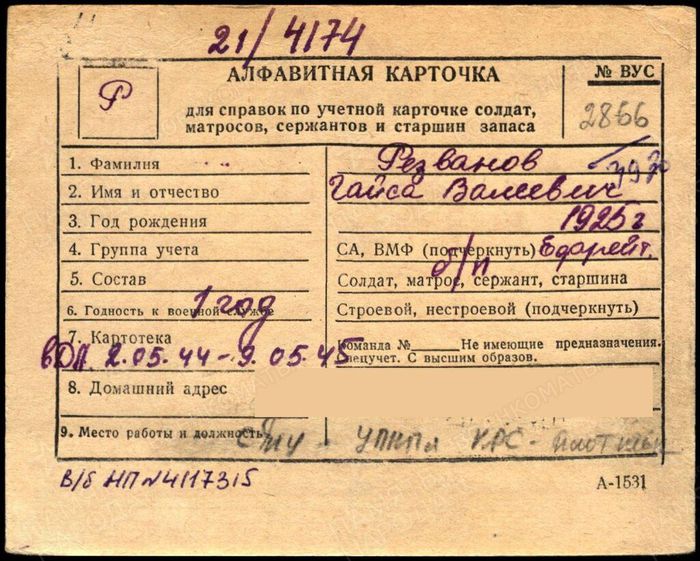 21/4174
АЛФАВИТНАЯ КАРТОЧКА
для справок по учетной карточке солдат,
матросов, сержантов и старшин запаса
Р
№ ВУС
2866
1. Фамилия Резванов
2. Имя и отчество Гайса Валиевич
3. Год рождения 1925 г
4. Группа учета СА, ВМФ (подчеркнуть) Ефрейт.
5. Состав Солдат, матрос, сержант, старшина
б/п
6. Годность к военной службе Строевой, нестроевой (подчеркнуть)
1 год
7. Картотека Команда № Не имеющие предназначения.
Спецучет. С высшим образов.
2.05.44-9.05.45
8. Домашний адрес
9. Место работы и должность УПНП КРС-
В/б НП №4117315
А-1531